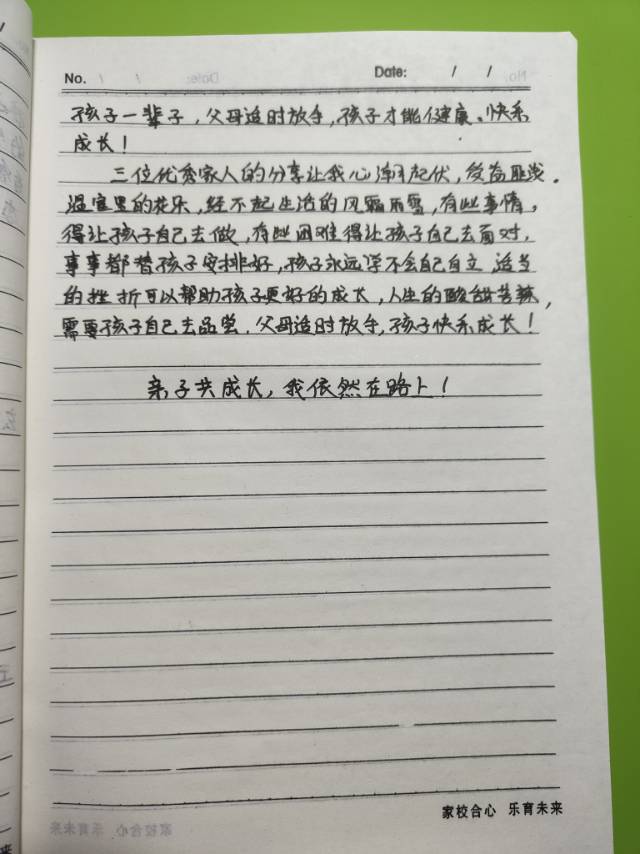 No.
Date: / /
孩子一辈子，父母适时放手，孩子才能健康、快乐
成长！
三位优秀家人的分享让我心潮起伏，受益匪浅．
温室里的花朵，经不起生活的风霜雨雪，有些事情，
得让孩子自己去做，有些困难得让孩子自己去面对．
事事都替孩子安排好，孩子永远学不会自己自立，适当
的挫折可以帮助孩子更好的成长，人生的酸甜苦辣，
需要孩子自己去品尝．父母适时放手，孩子快乐成长！
亲子共成长，我依然在路上！
家校合心 乐育未来